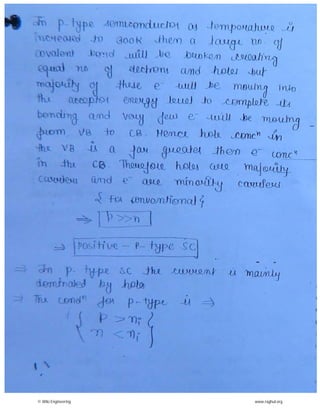 In p-type semiconductor as temperature is
increased to 300K then a large no. of
covalent bond will be broken creating
equal no of electrons and holes but
majority of these e⁻ will be moving into
the acceptor energy level to complete its
bonding and very few e⁻ will be moving
from VB to CB. Hence hole concⁿ in
the VB is a far greater then e⁻ concⁿ
in the CB. Therefore holes are majority
carriers and e⁻ are minority carriers
{ For conventional }
⇒ P>>n
⇒ Positive - P- type SC
⇒ In p- type SC the current is mainly
dominated by hole
⇒ The condⁿ for p-type is ⇒
{ P > ni }
{ n < ni }
© Wiki Engineering
www.raghul.org